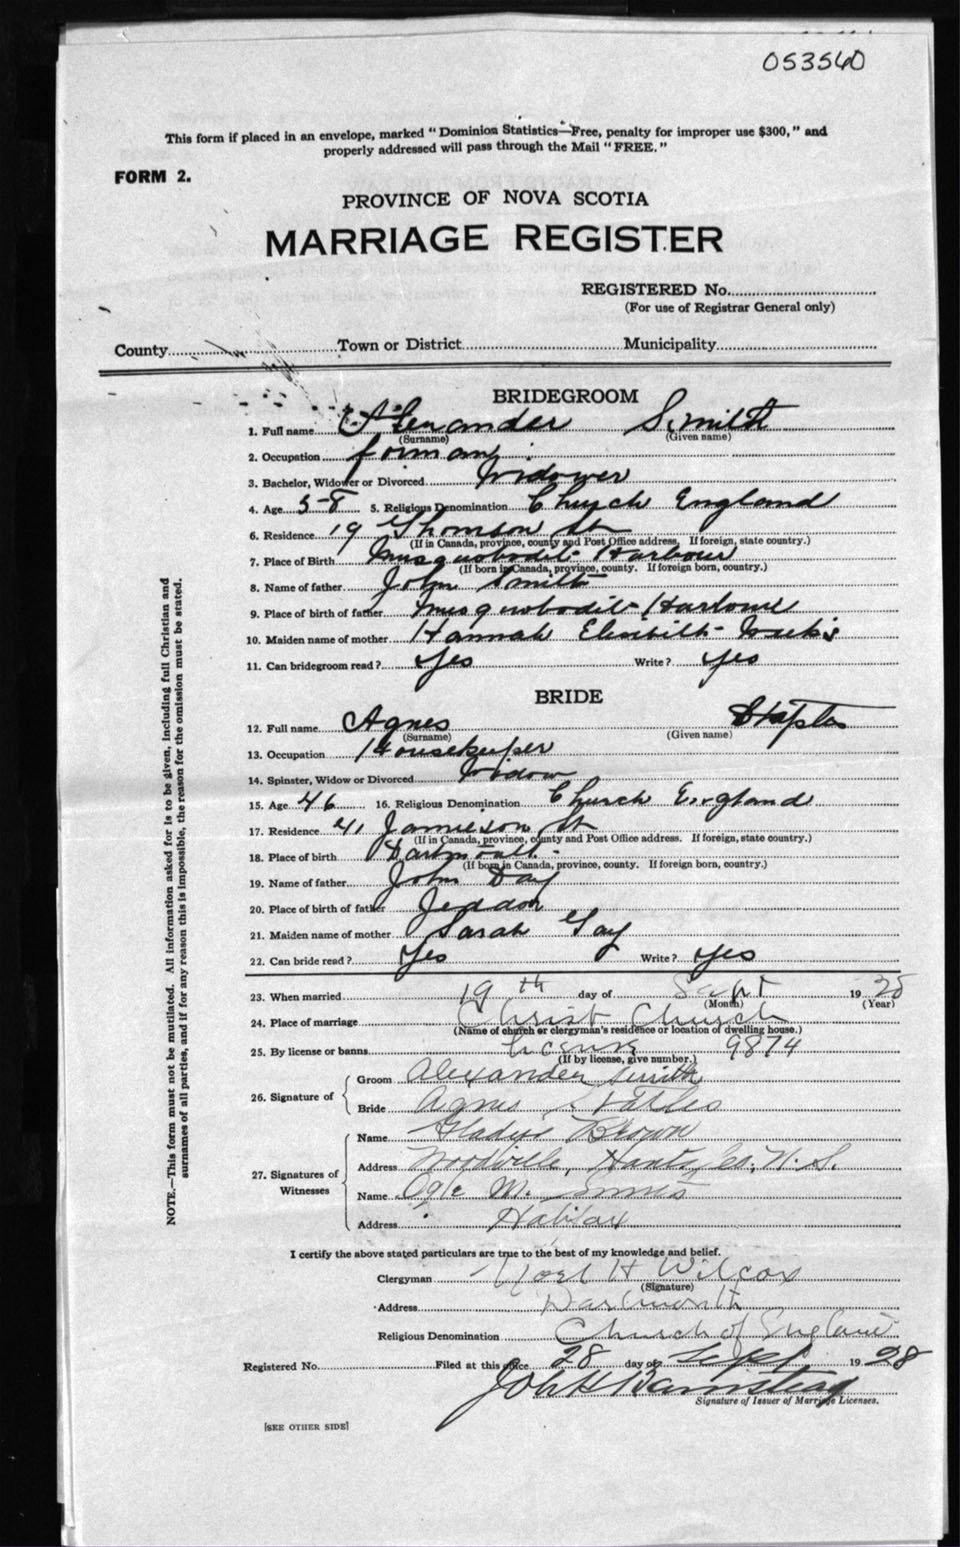 053560
This form if placed in an envelope, marked "Dominion Statistics—Free, penalty for improper use $300," and
properly addressed will pass through the Mail "FREE."
FORM 2.
PROVINCE OF NOVA SCOTIA
MARRIAGE REGISTER
REGISTERED No.
(For use of Registrar General only)
County Town or District Municipality
BRIDEGROOM
1. Full name Alexander Smith
(Surname) (Given name)
2. Occupation
3. Bachelor, Widower or Divorced Widower
4. Age 58 5. Religious Denomination Church England
6. Residence 19 Thomson St
(If in Canada, province, county and Post Office address. If foreign, state country.)
7. Place of Birth Musquobodit Harbour
(If born in Canada, province, county. If foreign born, country.)
8. Name of father John Smith
9. Place of birth of father Musquobodit Harbour
10. Maiden name of mother Hannah Elisibith
11. Can bridegroom read? Yes Write? Yes
BRIDE
12. Full name Agnes Staples
(Surname) (Given name)
13. Occupation Housekeeper
14. Spinster, Widow or Divorced Widow
15. Age 46 16. Religious Denomination Church England
17. Residence 41 Jamieson St
(If in Canada, province, county and Post Office address. If foreign, state country.)
18. Place of birth Dartmouth
(If born in Canada, province, county. If foreign born, country.)
19. Name of father John Day
20. Place of birth of father Jeddah
21. Maiden name of mother Sarah Gay
22. Can bride read? Yes Write? Yes
23. When married 19th day of Sept 1928
(Month) (Year)
24. Place of marriage Christ Church
(Name of church or clergyman's residence or location of dwelling house.)
25. By license or banns License 9874
(If by license, give number.)
26. Signature of
Groom Alexander Smith
Bride Agnes Staples
27. Signatures of Witnesses
Name Gladys Brown
Address Woodville, Hants Co; N. S.
Name M.
Address Halifax
I certify the above stated particulars are true to the best of my knowledge and belief.
Clergyman Noel H Wilcox
(Signature)
Address Dartmouth
Religious Denomination Church of England
Registered No. Filed at this office 28 day of Sept 1928
John H Bannister
Signature of Issuer of Marriage Licenses.
[SEE OTHER SIDE]
NOTE.—This form must not be mutilated. All information asked for is to be given, including full Christian and
surnames of all parties, and if for any reason this is impossible, the reason for the omission must be stated.